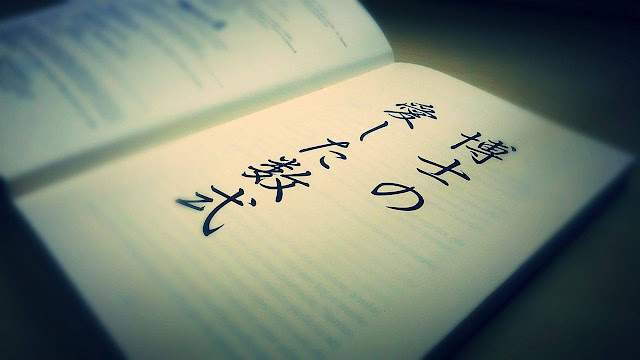 博士の
愛した
数式